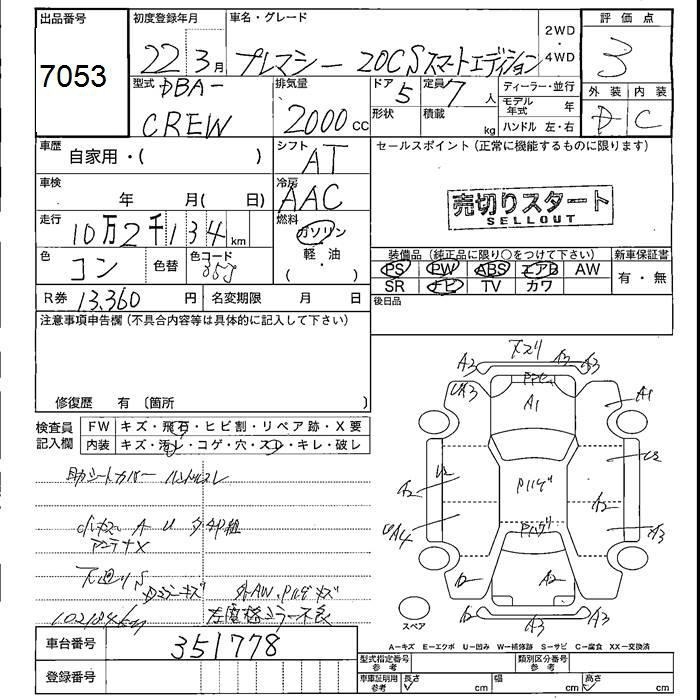 出品番号 7053
初度登録年月 22年 3月
車名・グレード プレマシー 20CSスマートエディション
2WD・4WD
評価点 3
外装 D 内装 C
型式 DBA-CREW
排気量 2000cc
ドア 5
形状
定員 7人
積載 kg
ディーラー・並行
モデル年式 年
ハンドル 左・右
車歴 自家用・( )
シフト AT
セールスポイント (正常に機能するものに限ります)
車検 年 月( 日)
冷房 AAC
売切りスタート
SELLOUT
走行 10万2千134km
燃料 ガソリン 軽油 ( )
色 コン 色替 色コード
装備品 (純正品に限り○をつけて下さい) 新車保証書
PS PW ABS エアB AW 有・無
SR TV カワ
R券 13,360円 名変期限 月 日
後日品
注意事項申告欄 (不具合内容等は具体的に記入して下さい)
修復歴 有 〔箇所 〕
検査員記入欄
FW キズ・飛石・ヒビ割・リペア跡・X要
内装 キズ・汚レ・コゲ・穴・スレ・キレ・破レ
助シートカバー ハンドルスレ
小キズ A U 多数
アンテナX
Dミラーキズ
左電格ミラー不良
102134km
車台番号 351778
登録番号
A3 A3 A3
UA3 A1
A1
U2 A2 A2
UA4 A3
A2 A2
A3 A3
スペア
A-キズ E-エクボ U-凹み W-補修跡 S-サビ C-腐食 XX-交換済
型式指定番号 参考 類別区分番号 参考
車庫証明用 参考 長さ cm 幅 cm 高さ cm